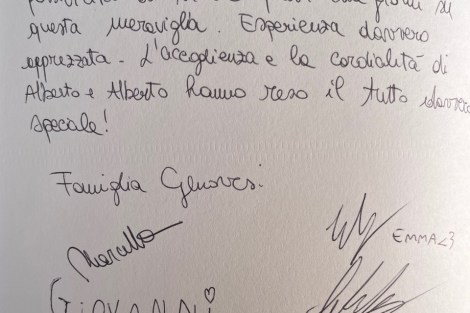 questa meraviglia. Esperienza davvero
apprezzata. L'accoglienza e la cordialità di
Alberto e Alberto hanno reso il tutto davvero
speciale!
Famiglia Genovesi
Marcello
EMMA<3
GIOVANNI